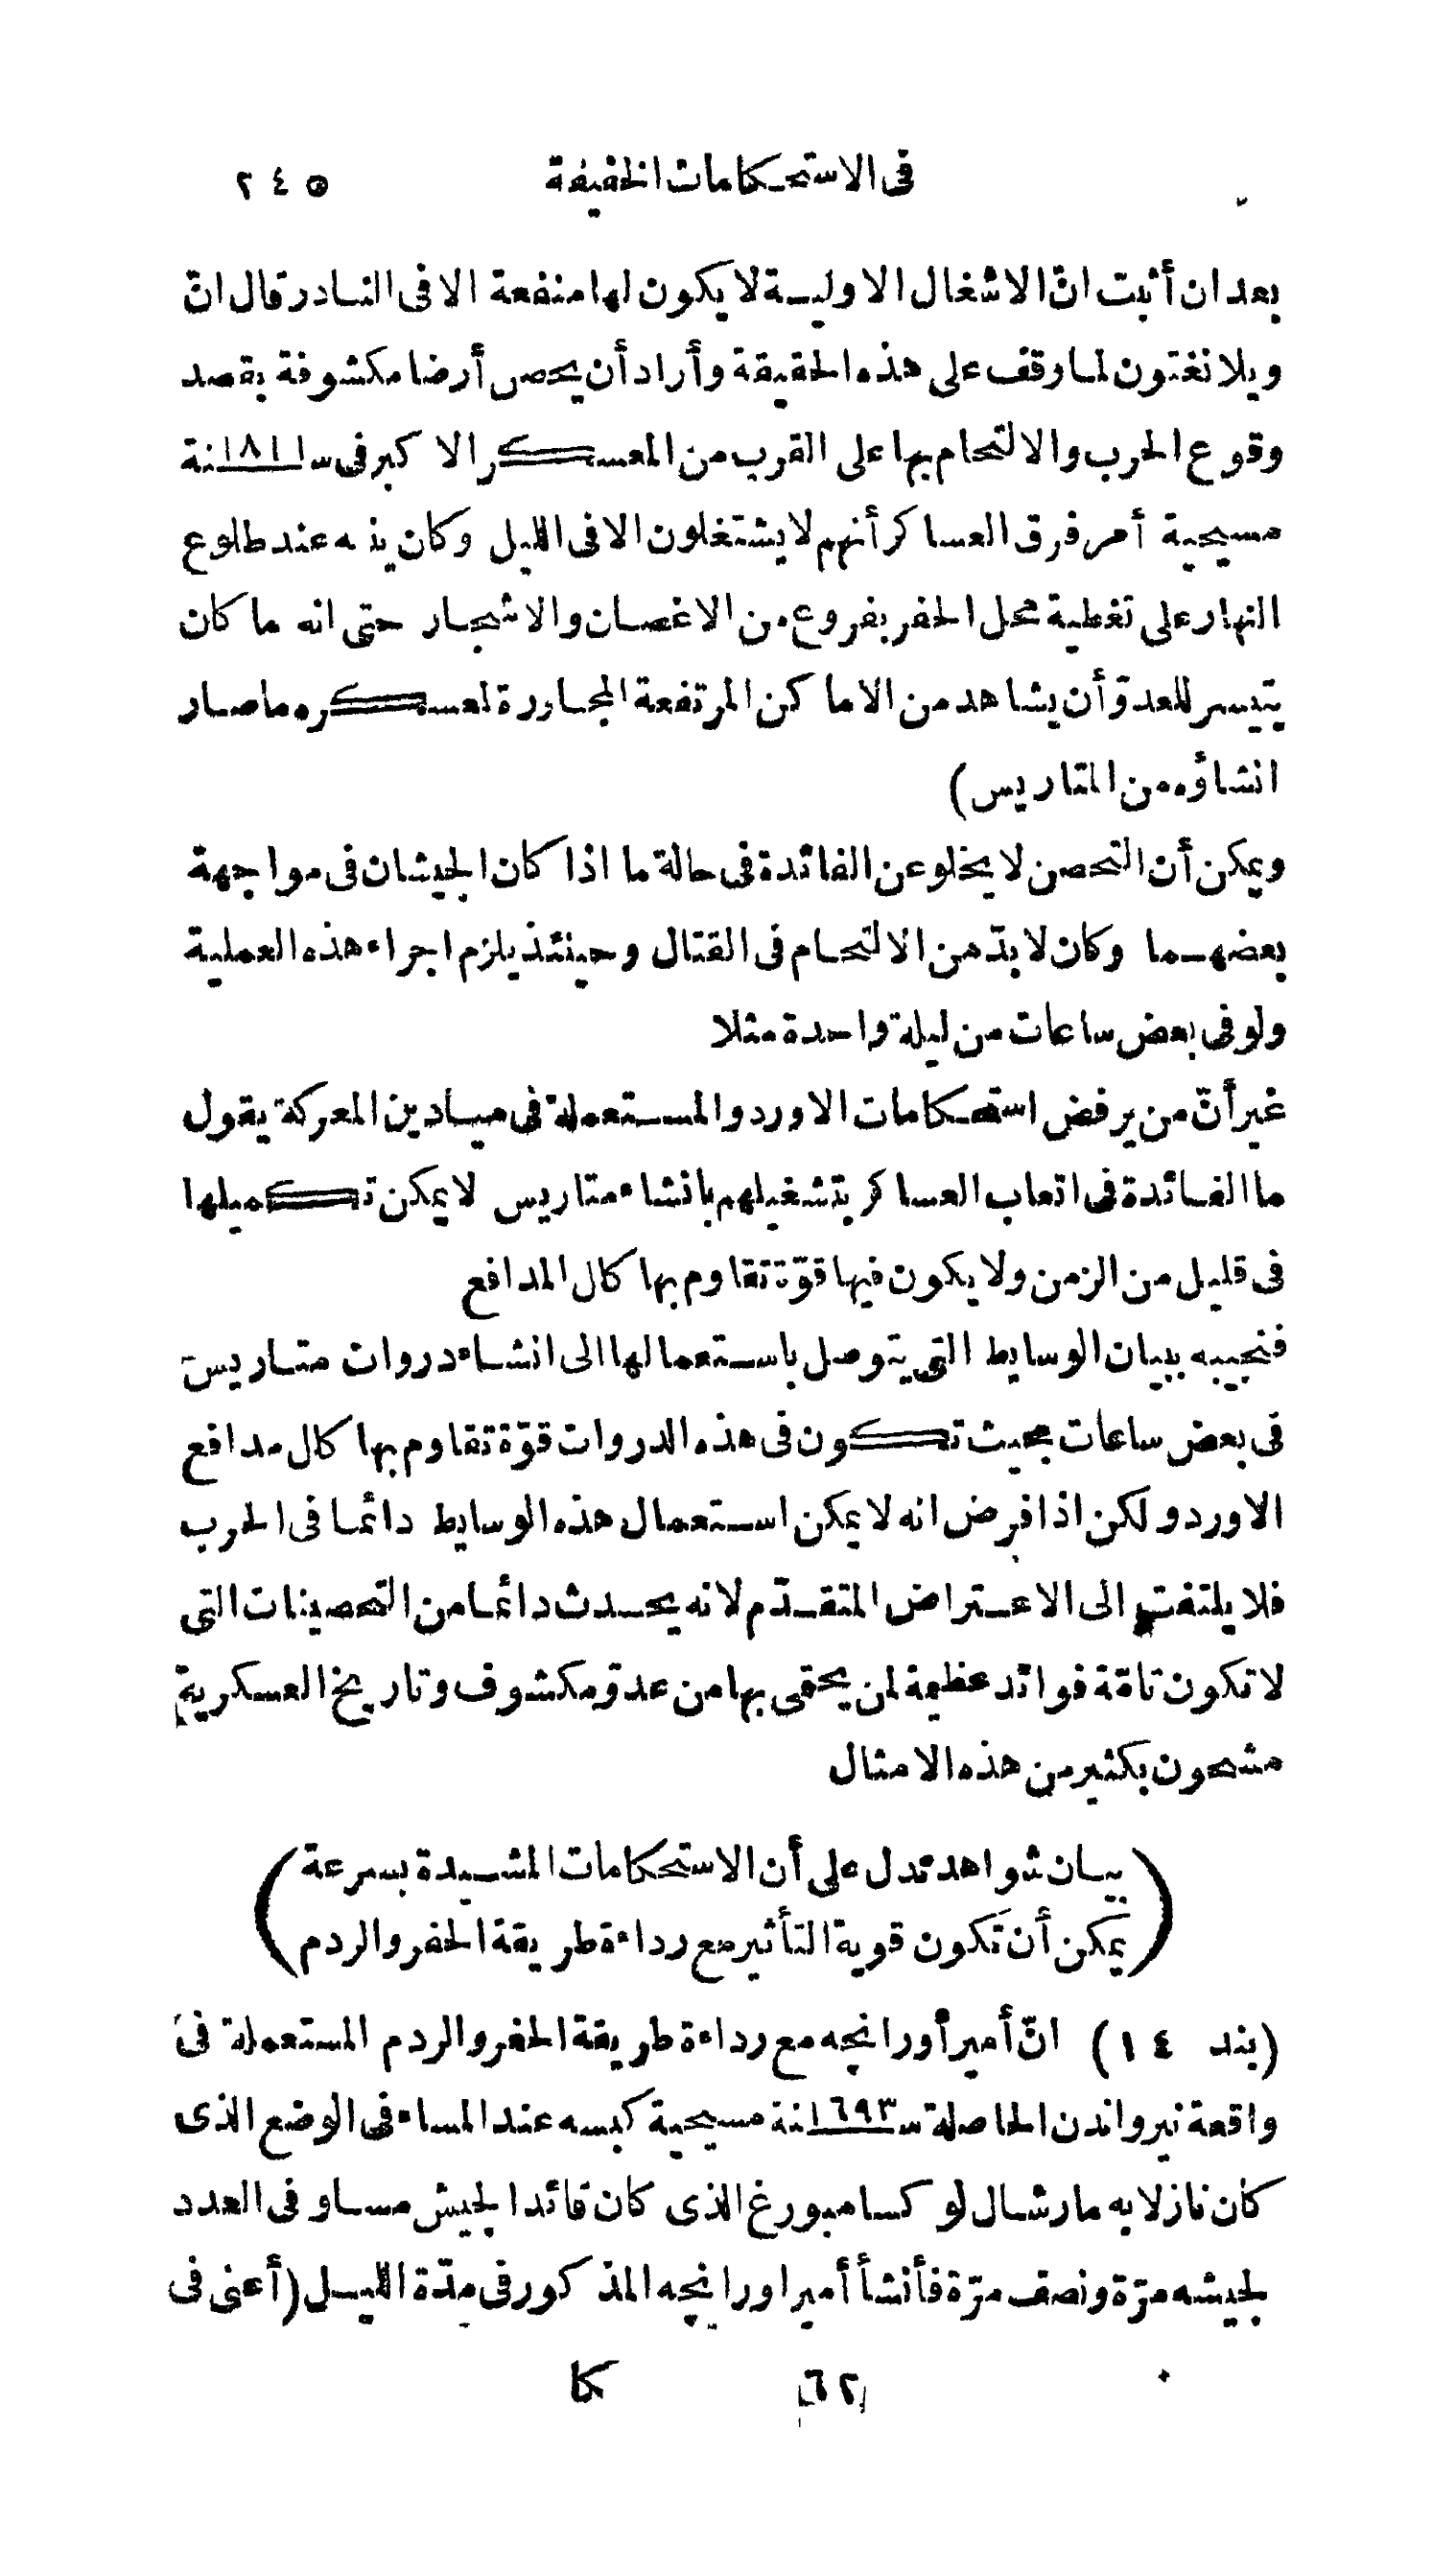 فى الاستحكامات الخفيفة ٢٤٥
بعد ان أثبت انّ الاشغال الاولية لا يكون لها منفعة الا فى النادر قال انّ
ويلانغتون لما وقف على هذه الحقيقة وأراد أن يحصن أرضا مكشوفة بقصد
وقوع الحرب والالتحام بها على القرب من المعسكر الاكبر فى سنة ١٨١١
مسيحية أمر فرق العساكر أنهم لا يشتغلون الا فى الليل وكان ينبه عند طلوع
النهار على تغطية محل الحفر بفروع من الاغصان والاشجار حتى انه ما كان
يتيسر للعدوّ أن يشاهد من الاماكن المرتفعة المجاورة لمعسكره ما صار
انشاؤه من المتاريس)
ويمكن أن التحصن لا يخلو عن الفائدة فى حالة ما اذا كان الجيشان فى مواجهة
بعضهما وكان لا بدّ من الالتحام فى القتال وحينئذ يلزم اجراء هذه العملية
ولو فى بعض ساعات من ليلة واحدة مثلا
غير أنّ من يرفض استحكامات الاوردو المستعملة فى ميادين المعركة يقول
ما الفائدة فى اتعاب العساكر بتشغيلهم بانشاء متاريس لا يمكن تكميلها
فى قليل من الزمن ولا يكون فيها قوّة تقاوم بها كال المدافع
فنجيبه ببيان الوسايط التى يتوصل باستعمالها الى انشاء دروات متاريس
فى بعض ساعات بحيث تكون فى هذه الدروات قوّة تقاوم بها كال مدافع
الاوردو لكن اذا فرض انه لا يمكن استعمال هذه الوسايط دائما فى الحرب
فلا يلتفت الى الاعتراض المتقدّم لانه يحدث دائما من التحصينات التى
لا تكون تامّة فوائد عظيمة لمن يحتمى بها من عدوّ مكشوف وتاريخ العسكرية
مشحون بكثير من هذه الامثال
(بيان شواهد تدل على أن الاستحكامات المشيدة بسرعة
يمكن أن تكون قوية التأثير مع رداءة طريقة الحفر والردم)
(بند ١٤) انّ أمير أورانجه مع رداءة طريقة الحفر والردم المستعملة فى
واقعة نيرواندن الحاصلة سنة ١٦٩٣ مسيحية كبسه عند المساء فى الوضع الذى
كان نازلا به مارشال لوكسامبورغ الذى كان قائدا لجيش مساو فى العدد
لجيشه مرّة ونصف مرّة فأنشأ أمير اورانجه المذكور فى مدّة الليل (أعنى فى
٦٢ كا